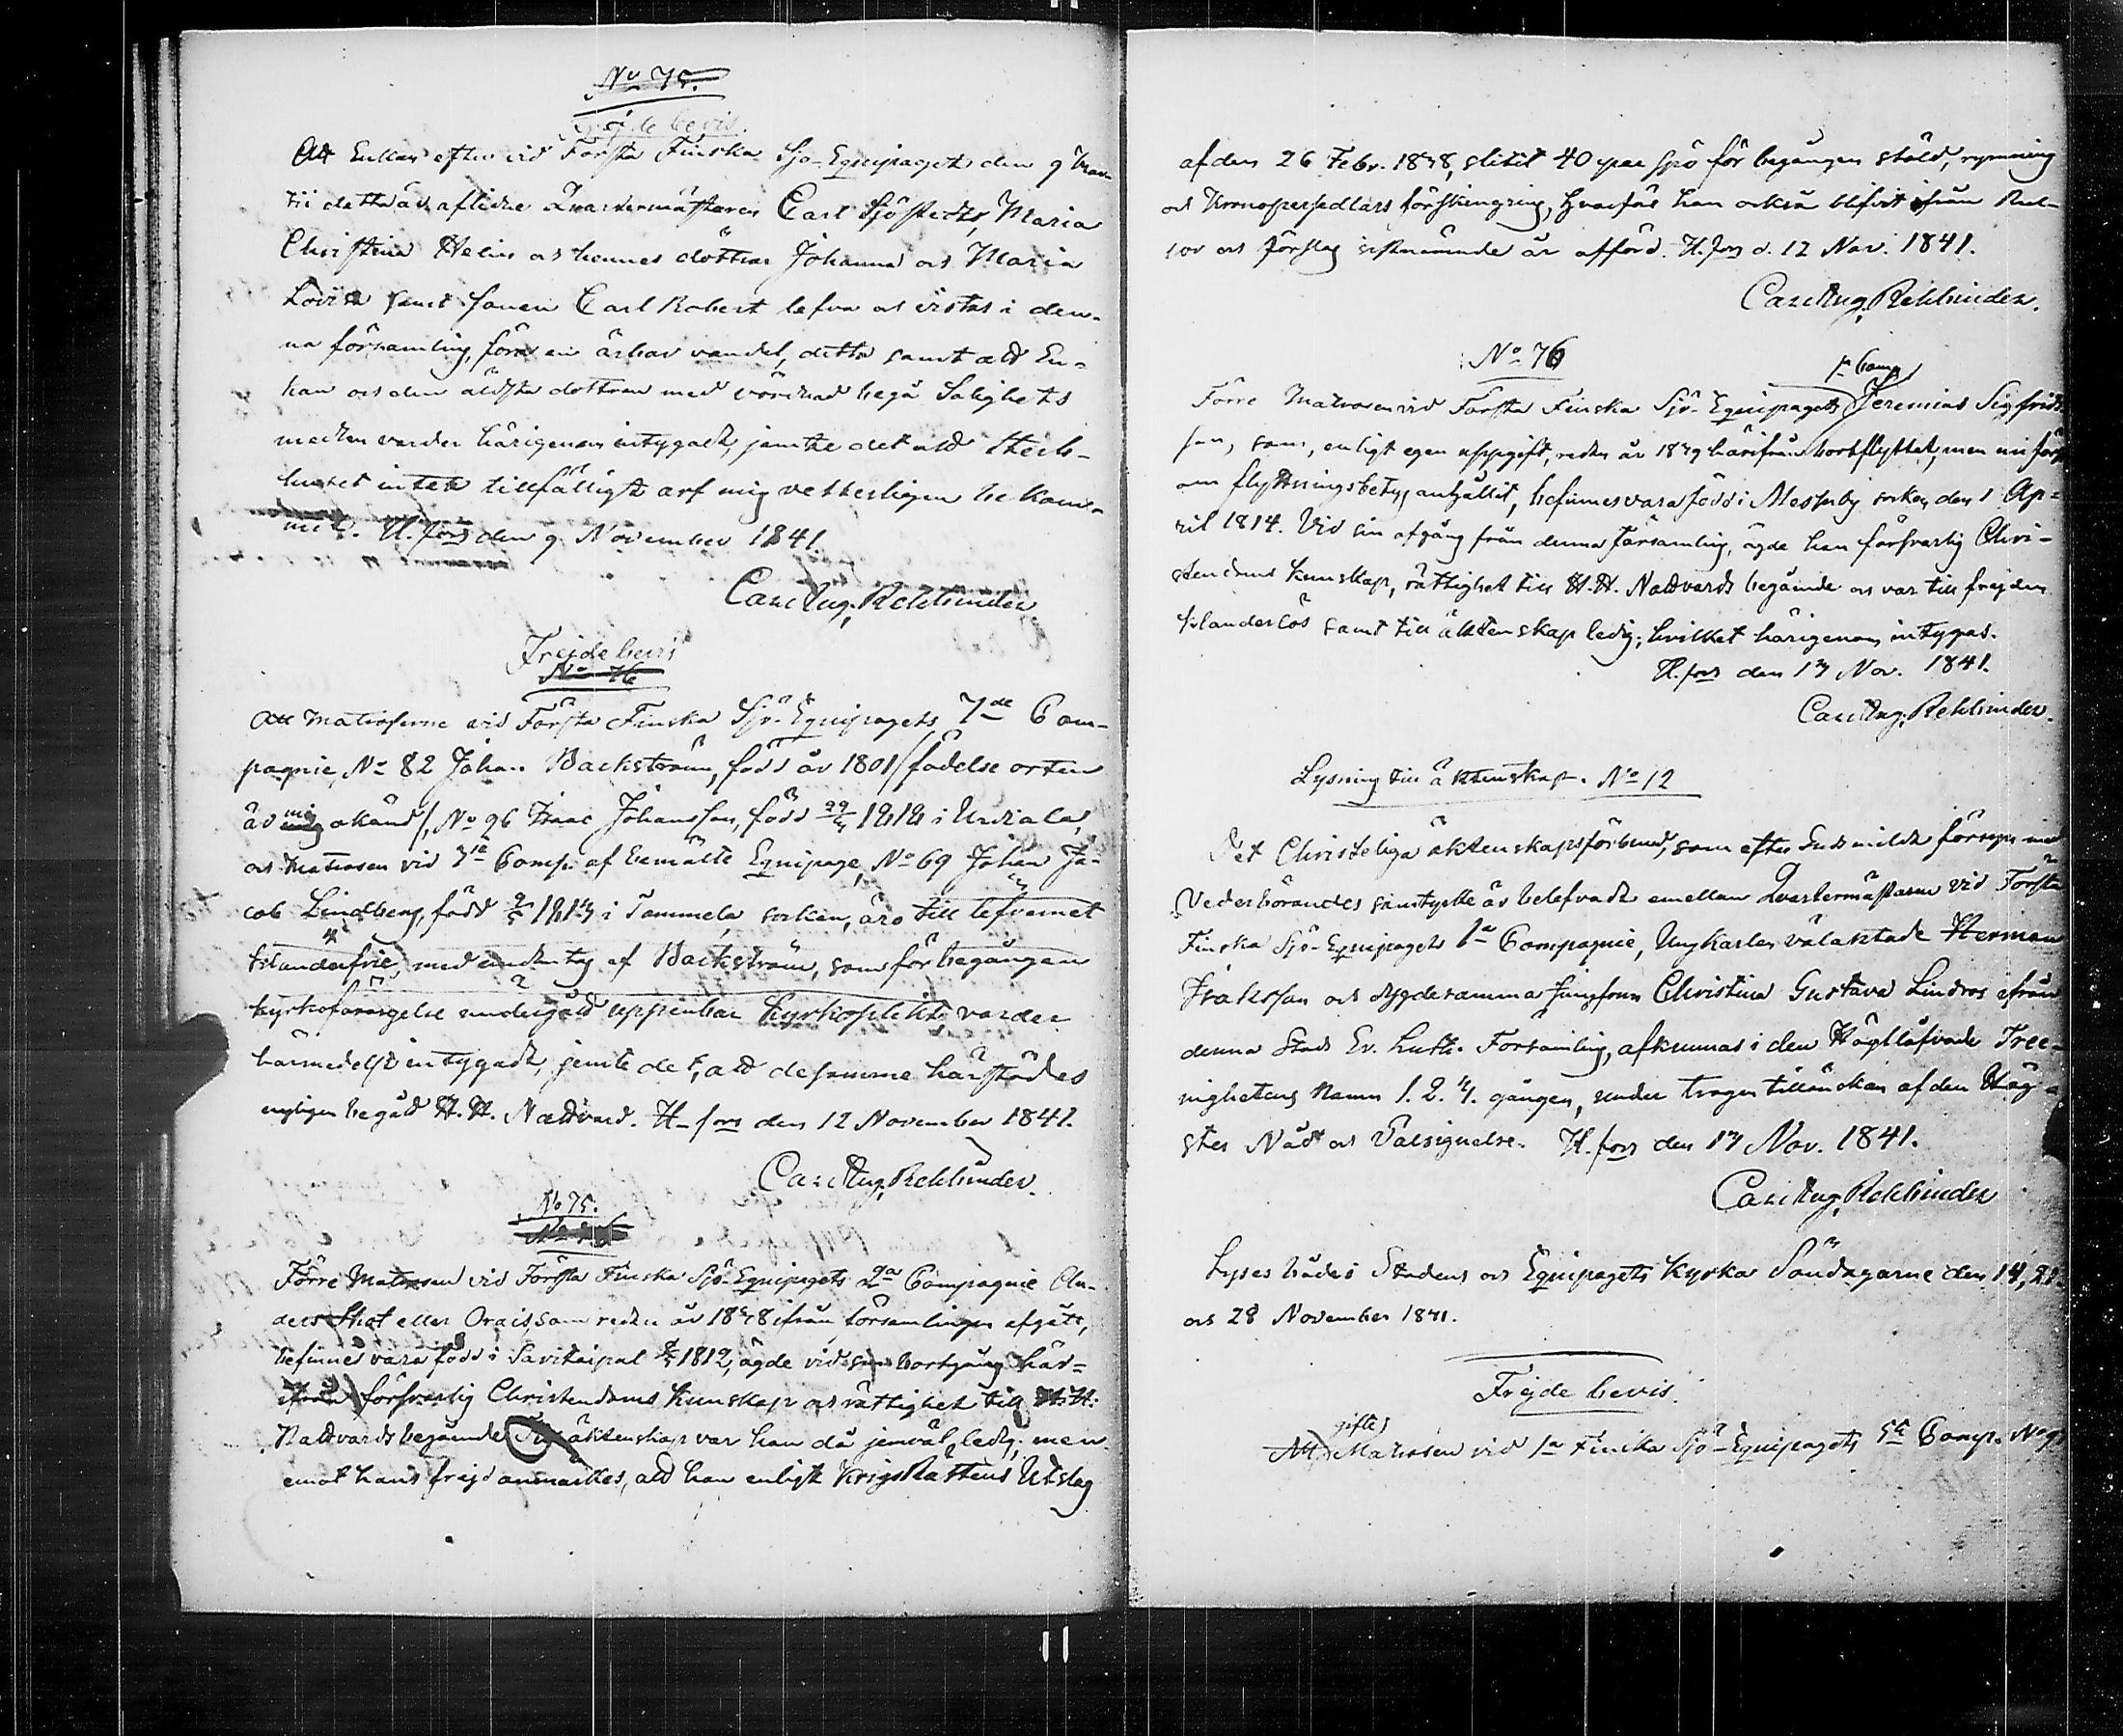 No 75.
Frejdebevis.
Att Enkan efter vid Första Finska Sjö-Equipaget den 9
till detta år aflidne Quartermästaren Carl Sjöstedt, Maria
Christina Helin och hennes döttrar Johanna och Maria
Lovisa samt sonen Carl Robert lefva och vistas i den-
na församling, föra en ärbar vandel, detta samt att En-
kan och den äldsta dottren med vördnad begå Salighets
medlen varder härigenom intygadt, jemte det att Sterb-
huset intet tillfälligt arf mig vetterligen bekom-
mit. H.fors den 9 November 1841.
Carl Aug. Rehbinder
Frejdebevis
No 76
Att Matroserne vid Första Finska Sjö-Equipagets 7de Com-
pagnie, No 82 Johan Backström, född år 1801 /födelseorten
är mig okänd/, No 96 Isaac Johansson, född 1818 i Urdiala,
och Matrosen vid 3ie Comp. af bemälte Equipage, No 69 Johan Ja-
cob Lindberg, född 1813 i Tammela socken, äro till lefvernet
klanderfrie, med undantag af Backström, som för begången
kyrkoförargelse undergått uppenbar Kyrkoplikt, varder
härmedelst intygadt, jemte det, att desamme härstädes
nyligen begått H. H. Nattvard. H-fors den 12 November 1841.
Carl Aug. Rehbinder.
No 75.
No 76
Förre Matrosen vid Första Finska Sjö-Equipagets 2a Compagnie An-
ders Skot eller Orais, som redan år 1838 ifrån församlingen afgått,
befinnes vara född i Savitaipal 1812, ägde vid sin bortgång här-
ifrån försvarlig Christendoms kunskap och rättighet till H. H.
Nattvards begående. Till äktenskap var han då jemväl ledig; men
emot hans frejd anmärkes, att han enligt KrigsRättens Utslag
af den 26 Febr. 1838, slitit 40 par spö för begången stöld, rymning
och Kronopersedlars förskingring, hvarföre han också blifvit ifrån Rul-
lor och förslag sistnämnde år afförd. H.fors d. 12 Nov. 1841.
Carl Aug. Rehbinder.
No 76
1a Comp
Förre Matrosen vid Första Finska Sjö-Equipagets Jeremias Sigfrids-
son, som, enligt egen uppgift, redan år 1839 härifrån bortflyttat, men nu först
om flyttningsbetyg anhållit, befinnes vara född i Messuby socken den 1 Ap-
ril 1814. Vid sin afgång från denna församling, ägde han försvarlig Chri-
stendoms kunskap, rättighet till H. H. Nattvards begående och var till frejden
klanderlös samt till äktenskap ledig; hvilket härigenom intygas.
H.fors den 13 Nov. 1841.
Carl Aug. Rehbinder.
Lysning till äktenskap. No 12
Det Christeliga äktenskapsförbund, som efter Guds milda försyn med
Vederbörandes samtycke är belefvadt emellan Quartermästaren vid Första
Finska Sjö-Equipagets 1a Compagnie, Ungkarlen välaktade Herman
Isaksson och dygdesamma Jungfrun Christina Gustava Lindros ifrån
denna Stads Ev. Luth. Församling, afkunnas i den Höglofvade Tree-
nighetens Namn 1. 2. 3. gången, under trogen tillönskan af den Hög-
stes Nåd och Välsignelse. H.fors den 13 Nov. 1841.
Carl Aug. Rehbinder
Lyses både i Stadens och Equipagets Kyrkor Söndagarne den 14, 21
och 28 November 1841.
Frejdebevis.
gifte
Att Matrosen vid 1a Finska Sjö-Equipagets 5te Comp. No 9